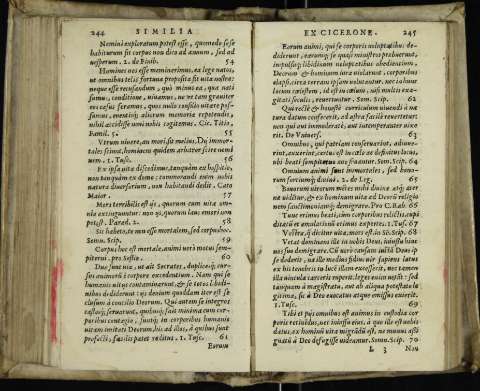 244 SIMILIA
Nemini exploratum potest esse, quomodo sese
habiturum sit corpus non dico ad annum, sed ad
uesperum. 2. de finib. 54
Homines nos esse meminerimus, ea lege natos,
ut omnibus telis fortunæ proposita sit uita nostra:
neque esse recusandum, quo minus ea, qua nati
sumus, conditione, uiuamus, ne ue tam grauiter
eos casus feramus, quos nullo consilio uitare pos-
sumus, euentisq; aliorum memoria repetendis,
nihil accidisse noui nobis cogitemus. Cic. Titio.
Famil. 5. 55
Vtrum uiuere, an mori sit melius, Dij immor-
tales sciunt, hominem quidem arbitror scire nemi
nem. 1. Tusc. 56
Ex ipsa uita discedimus, tanquàm ex hospitio,
non tanquàm ex domo: commorandi enim nobis
natura diuersorium, non habitandi dedit. Cato
Maior. 57
Mors terribilis est ijs, quorum cum uita om-
nia extinguuntur: non ijs, quorum laus emori non
potest. Parad. 2. 58
Sic habeto, te non esse mortalem, sed corpus hoc.
Somn. Scip. 59
Corpus hoc est mortale, animi uerò motus sem-
piterni. pro Sestio. 60
Duæ sunt uiæ, ut ait Socrates, duplicesq; cur-
sus animorū è corpore excedentium. Nam qui se
humanis uitijs contaminarunt, & se totos libidi-
nibus dediderunt: ijs deuium quoddam iter est, se-
clusum à concilio Deorum. Qui autem se integros
castosq; seruarunt, quibusq; fuit minima cum cor-
poribus contagio, suntq; in corporibus humanis
uitam imitati Deorum, his ad illos, à quibus sunt
profecti, facilis patet reditus. 1. Tusc. 61
Eorum
EX CICERONE. 245
Eorum animi, qui se corporis uoluptatibus de-
diderunt, earumq; se quasi ministros præbuerunt,
impulsuq; libidinum uoluptatibus obedientium,
Deorum & hominum iura uiolarunt, corporibus
elapsi, circa terram ipsam uolutantur, nec in hunc
locum cœlestem, id est in cœlum, nisi multis exa-
gitati seculis, reuertuntur. Som. Scip. 62
Qui rectè & honestè curriculum uiuendi à na-
tura datum confecerit, ad astra facilè reuertetur:
non qui aut immoderatè, aut intemperatè uixe-
rit. De Vniuers. 63
Omnibus, qui patriam conseruarint, adiuue-
rint, auxerint, certus est in cœlo ac definitus locus,
ubi beati sempiterno æuo fruantur. Som. Scip. 64
Omnium animi sunt immortales, sed bono-
rum fortiumq; diuini. 2. de Leg. 65
Bonorum uirorum mētes mihi diuinæ atq; æter
næ uidētur, & ex hominum uita ad Deorū religio
nem sanctimoniamq; demigrare. Pro C. Rab. 66
Tunc erimus beati, cùm corporibus relictis, cupi
ditatū et æmulationū erimus expertes. 1. Tus. 67
Vestra, q̃ dicitur uita, mors est. in Sic. Scip. 68
Vetat dominans ille in nobis Deus, iniussu hinc
nos suo demigrare. Cū uerò causam iustā Deus ip
se dederit, næ ille medius fidius uir sapiens lætus
ex his tenebris in lucē illam excesserit, nec tamen
illa uincula carceris ruperit. leges enim uetāt: sed
tanquam à magistratu, aut ab aliqua potestate le
gitima, sic à Deo euocatus atque emissus exierit.
1. Tusc. 69
Tibi et pijs omnibus est animus in custodia cor
poris retinēdus, nec iniussu eius, à quo ille est uobis
datus, ex hominū uita migrādū est, ne munus assi
gnatū à Deo defugisse uideamur. Somn. Scip. 70
L 3 Non